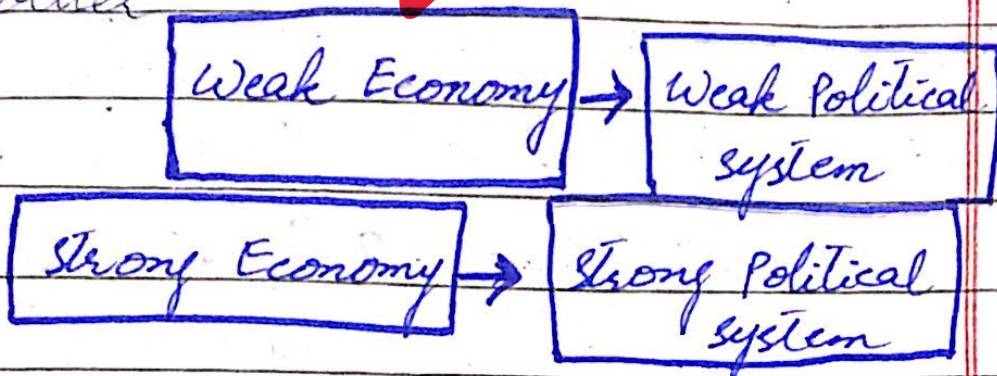 Weak Economy → Weak Political
system
Strong Economy → Strong Political
system